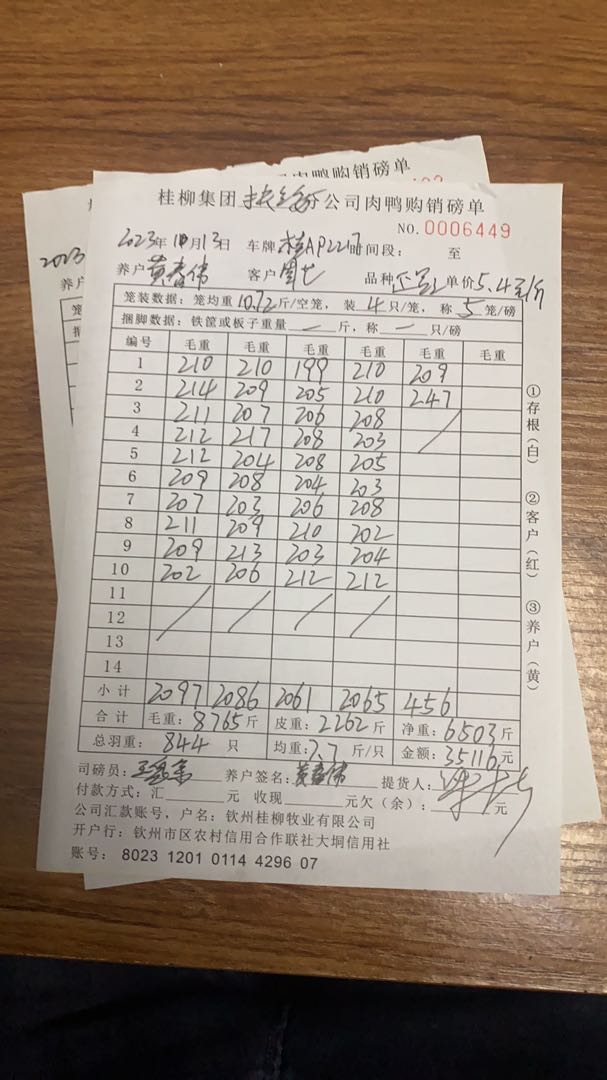 肉鸭购销磅单
2023
养户
桂柳集团 分公司肉鸭购销磅单
NO. 0006449
2023年10月13日 车牌 桂AP22 时间段: 至
养户 黄春伟 客户 周七 品种 单价 5.4元/斤
笼装数据: 笼均重 10.72 斤/空笼, 装 4 只/笼, 称 5 笼/磅
捆脚数据: 铁筐或板子重量 — 斤, 称 — 只/磅
编号 毛重 毛重 毛重 毛重 毛重 毛重
1 210 210 199 210 209
2 214 209 205 210 247
3 211 207 206 208
4 212 217 208 203
5 212 204 208 205
6 209 208 204 203
7 207 203 206 208
8 211 209 210 202
9 209 213 203 204
10 202 206 212 212
11
12
13
14
小计 2097 2086 2061 2065 456
合计 毛重: 8765 斤 皮重: 2262 斤 净重: 6503 斤
总羽重: 844 只 均重: 7.7 斤/只 金额: 35116 元
司磅员: 养户签名: 黄春伟 提货人:
付款方式: 汇 元 收现 元 欠(余): 元
公司汇款账号, 户名: 钦州桂柳牧业有限公司
开户行: 钦州市区农村信用合作联社大垌信用社
账号: 8023 1201 0114 4296 07
①存根(白) ②客户(红) ③养户(黄)